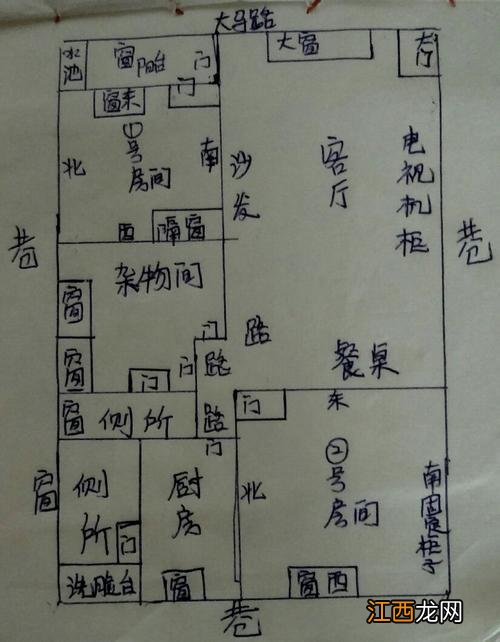 大马路
水池
窗
阳台
门
大窗
大门
门
窗东
①号房间
北
南
西
隔窗
沙发
客厅
电视机柜
巷
巷
杂物间
窗
窗
门
门
门
路
路
路
餐桌
窗
侧所
门
门
东
窗
侧所
门
厨房
北
②号房间
南固定柜子
洗脸台
窗
窗西
巷
江西龙网